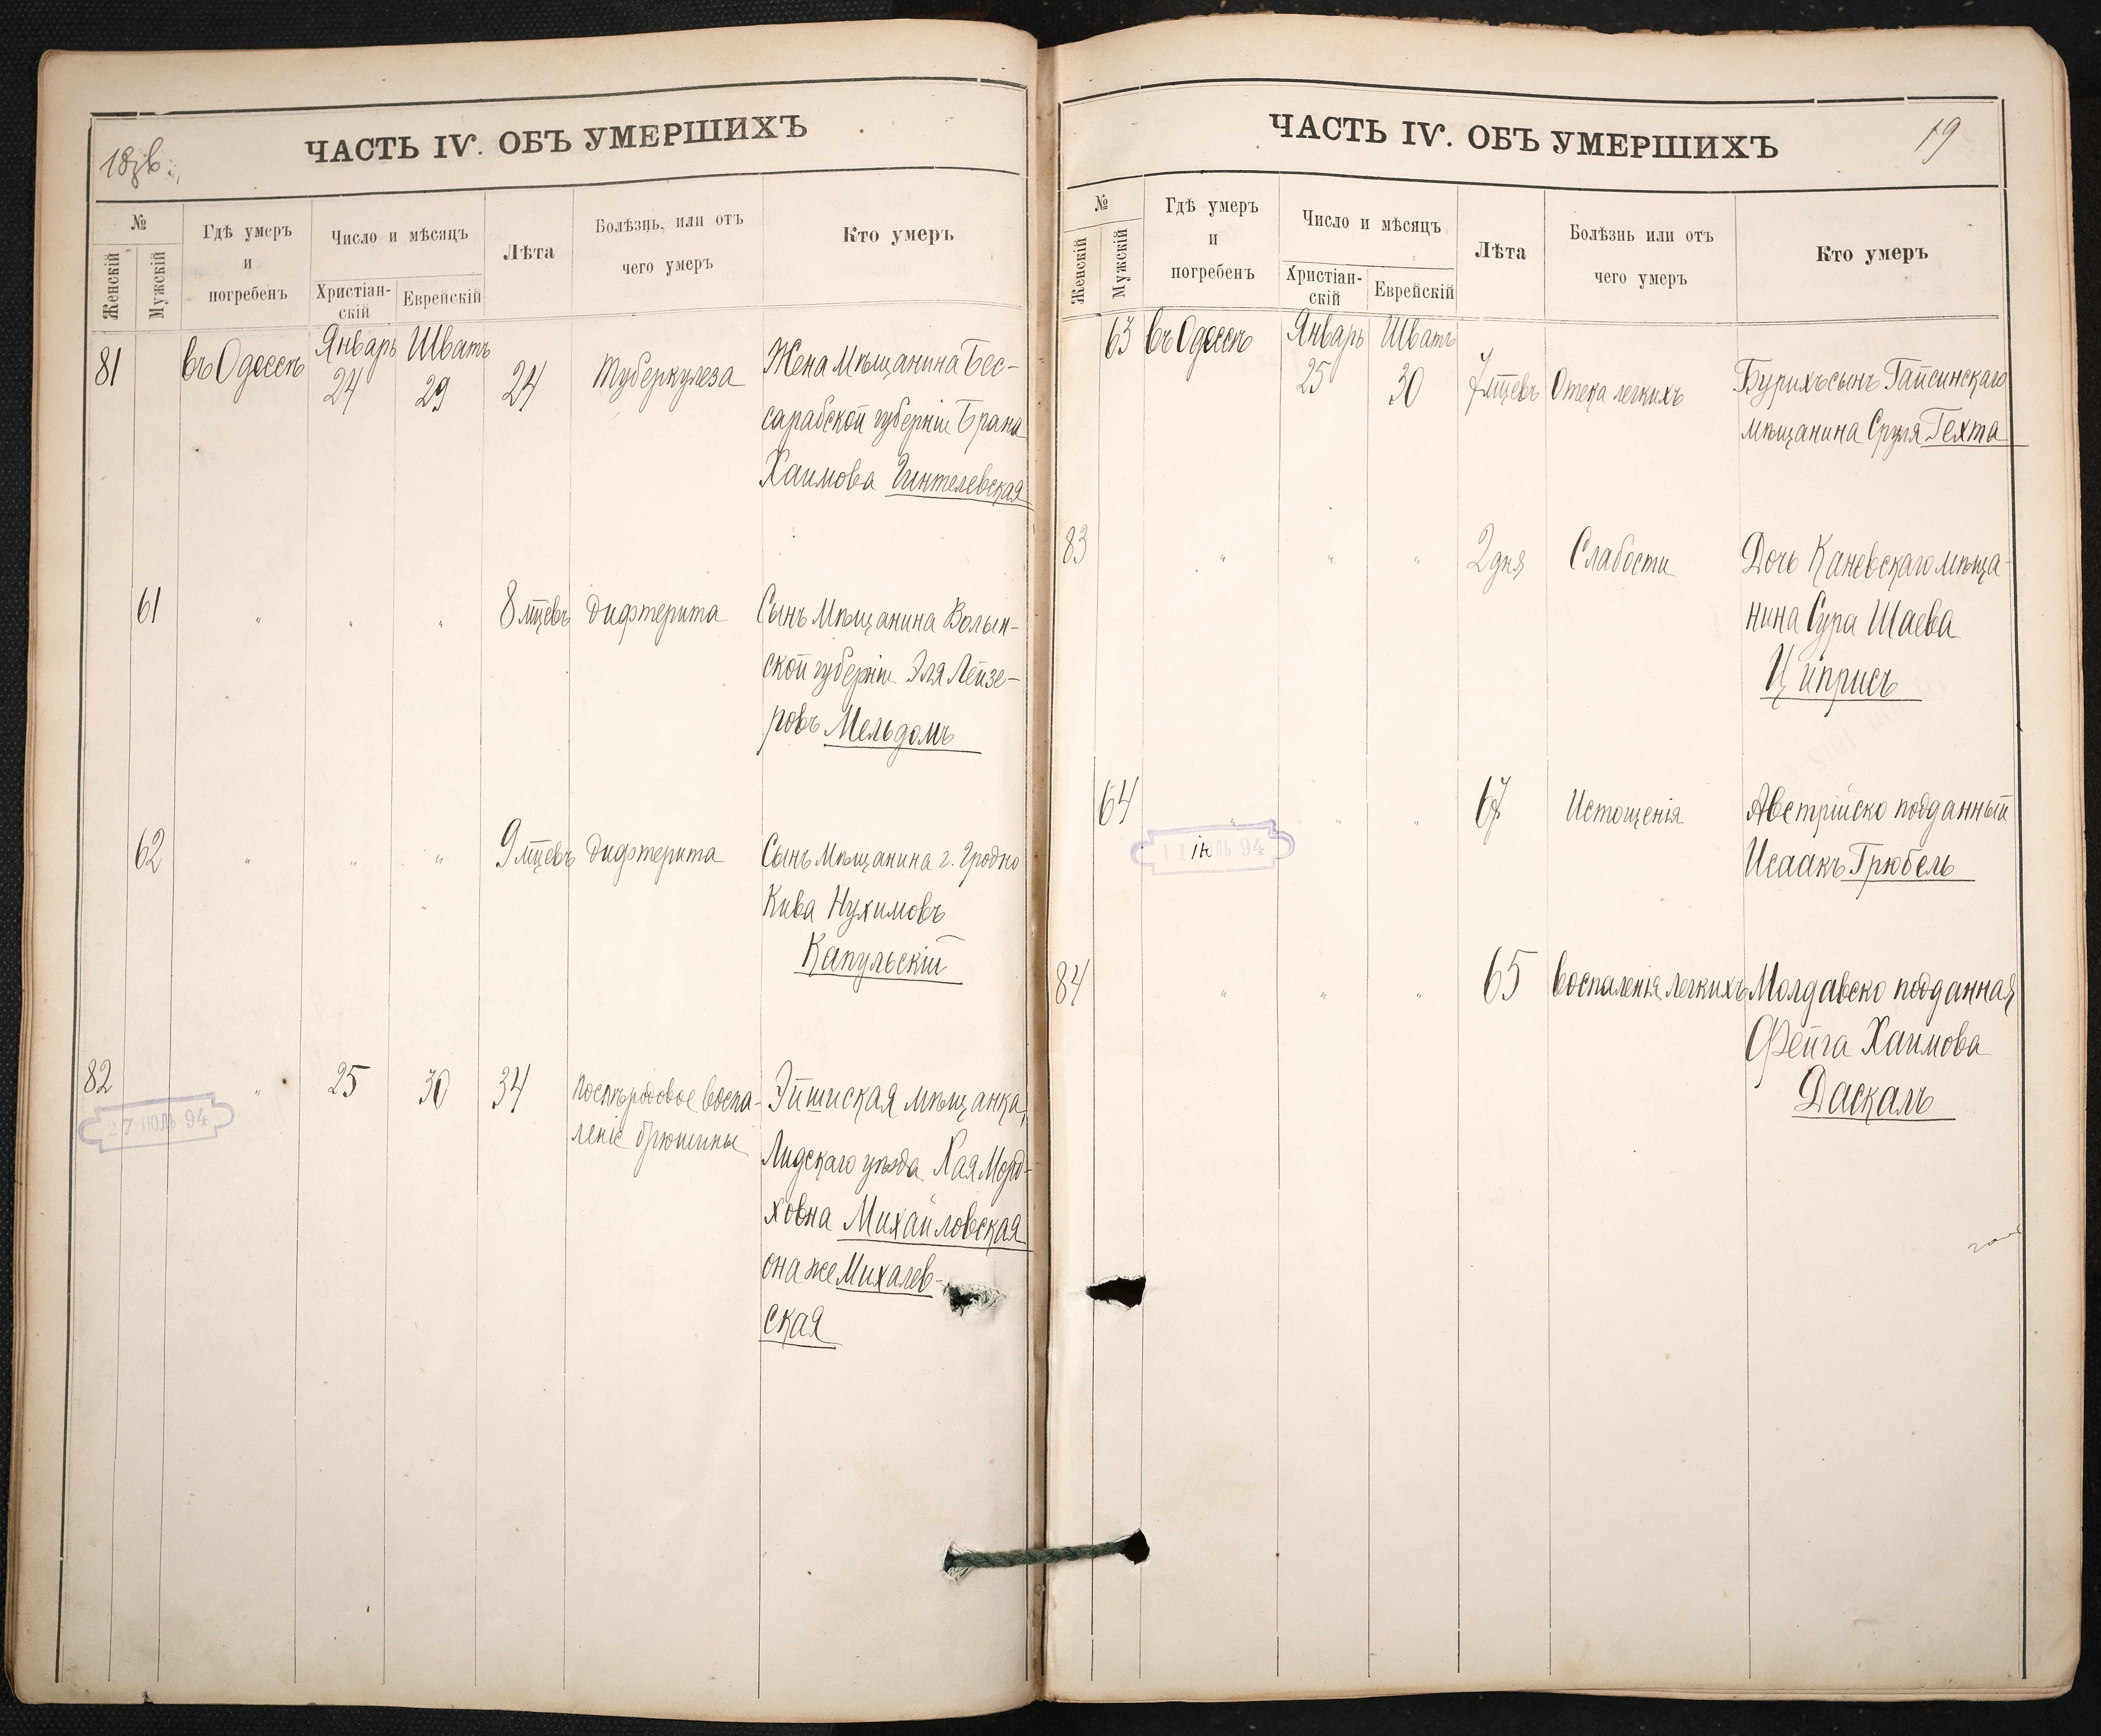 18 зв.
ЧАСТЬ IV. ОБЪ УМЕРШИХЪ
№
Женскій
Мужскій
Гдѣ умеръ
и
погребенъ
Число и мѣсяцъ
Христіан-
скій
Еврейскій
Лѣта
Болѣзнь, или отъ
чего умеръ
Кто умеръ
81
въ Одессѣ
Январь
24
Шватъ
29
24
Туберкулеза
Жена Мѣщанина Бес-
сарабской губерніи Брана
Хаимова Гинтелевская
61
"
"
"
8 мцевъ
дифтерита
Сынъ Мѣщанина Волын-
ской губерніи Эля Лейзе-
ровъ Мельдомъ
62
"
"
"
9 мцевъ
дифтерита
Сынъ Мѣщанина г. Гродно
Кива Нухимовъ
Капульскій
82
"
25
30
34
послѣродовое воспа-
леніе брюшины
Эйшиская мѣщанка,
Лидскаго уѣзда Хая Морд-
ховна Михайловская
она же Михалев-
ская
27 ІЮЛЬ 94
ЧАСТЬ IV. ОБЪ УМЕРШИХЪ
19
№
Женскій
Мужскій
Гдѣ умеръ
и
погребенъ
Число и мѣсяцъ
Христіан-
скій
Еврейскій
Лѣта
Болѣзнь или отъ
чего умеръ
Кто умеръ
63
въ Одессѣ
Январь
25
Шватъ
30
7 мцевъ
Отека легкихъ
Бурихъ сынъ Гайсинскаго
мѣщанина Сруля Гехта
83
"
"
"
2 дня
Слабости
Дочь Каневскаго мѣща-
нина Сура Шаева
Циприсъ
64
"
"
"
67
Истощенія
Австрійско подданный
Исаакъ Грюбель
11 ІЮЛЬ 94
84
"
"
"
65
воспаленія легкихъ
Молдавско подданная
Фейга Хаимова
Даскалъ